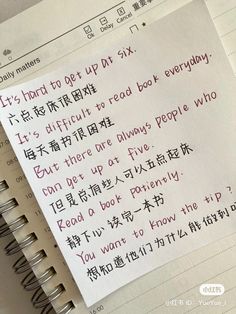 重要事
Ok Delay Cancel
Daily matters
It's hard to get up at six.
六点起床很困难
It's difficult to read book everyday.
每天看书很困难
But there are always people who
can get up at five.
但是总有些人可以五点起床
Read a book patiently.
静下心读完一本书
You want to know the tip?
想知道他们为什么能做到吗
16:00
小红书
小红书 ID: